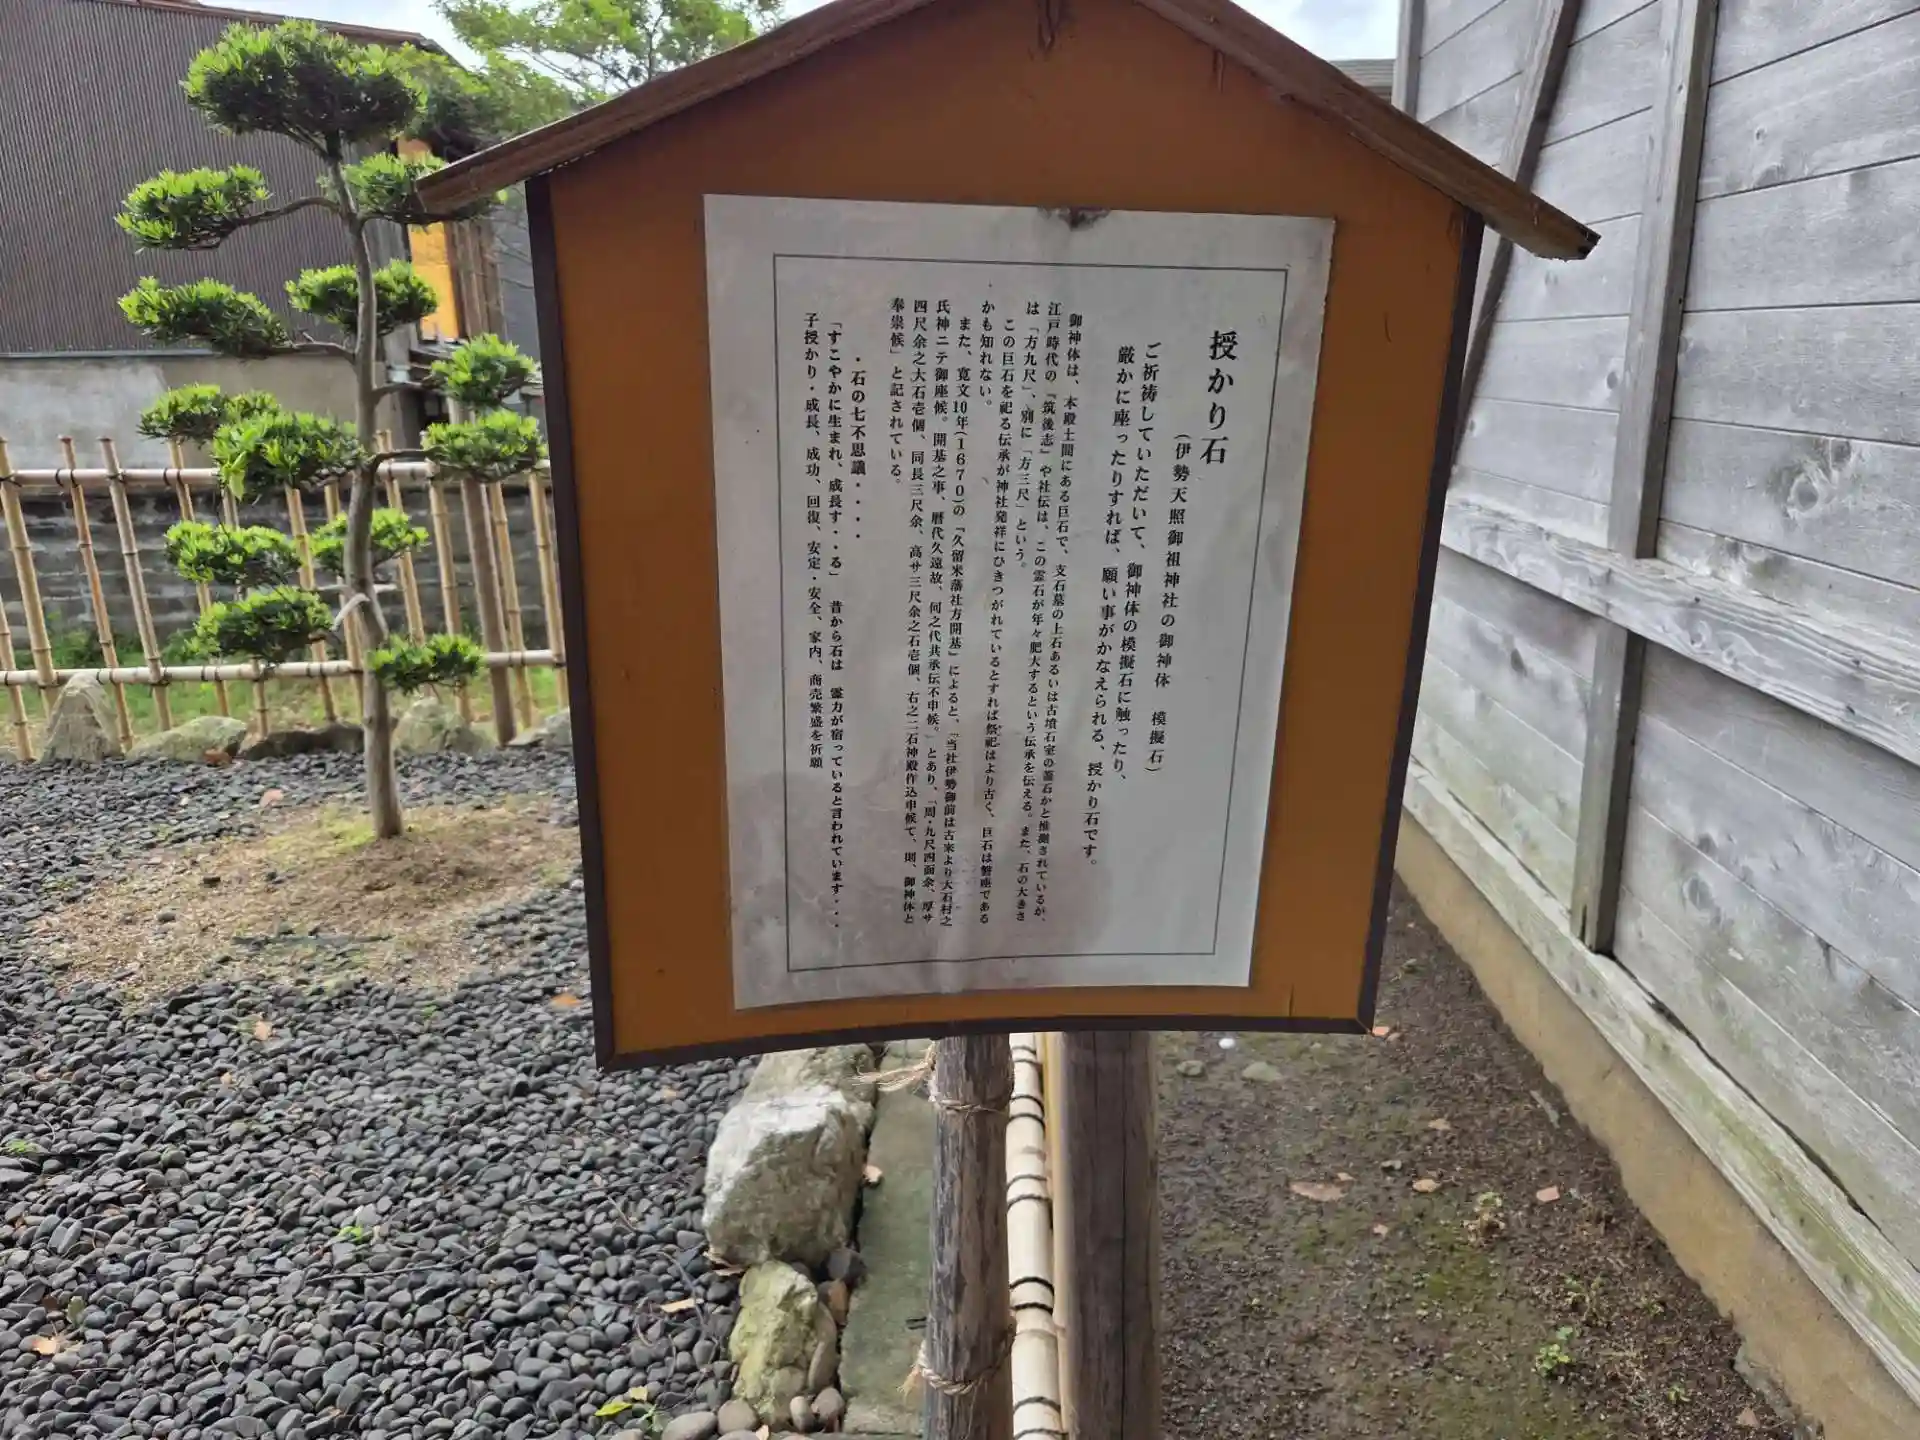 授かり石
（伊勢天照御祖神社の御神体　模擬石）
ご祈祷していただいて、御神体の模擬石に触ったり、
厳かに座ったりすれば、願い事がかなえられる、授かり石です。
御神体は、本殿土間にある巨石で、支石墓の上石あるいは古墳石室の蓋石かと推測されているが、
江戸時代の『筑後志』や社伝は、この霊石が年々肥大するという伝承を伝える。また、石の大きさ
は「方九尺」、別に「方三尺」という。
この巨石を祀る伝承が神社発祥にひきつがれているとすれば祭祀はより古く、巨石は磐座である
かも知れない。
また、寛文10年(1670)の『久留米藩社方開基』によると、「当社伊勢御前は古来より大石村之
氏神ニテ御座候。開基之事、暦代久遠故、何之代共承伝不申候。」とあり、「周・九尺四面余、厚サ
四尺余之大石壱個、同長三尺余、高サ三尺余之石壱個、右之二石神殿作込申候て、則、御神体と
奉祟候」と記されている。
・石の七不思議・・・・
「すこやかに生まれ、成長す・・る」　昔から石は　霊力が宿っていると言われています・・・
子授かり・成長、成功、回復、安定・安全、家内、商売繁盛を祈願